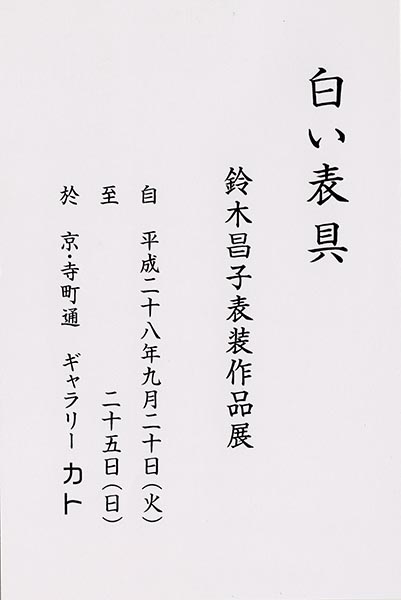 白い表具
鈴木昌子表装作品展
自 平成二十八年九月二十日(火)
至 二十五日(日)
於 京・寺町通 ギャラリー カト